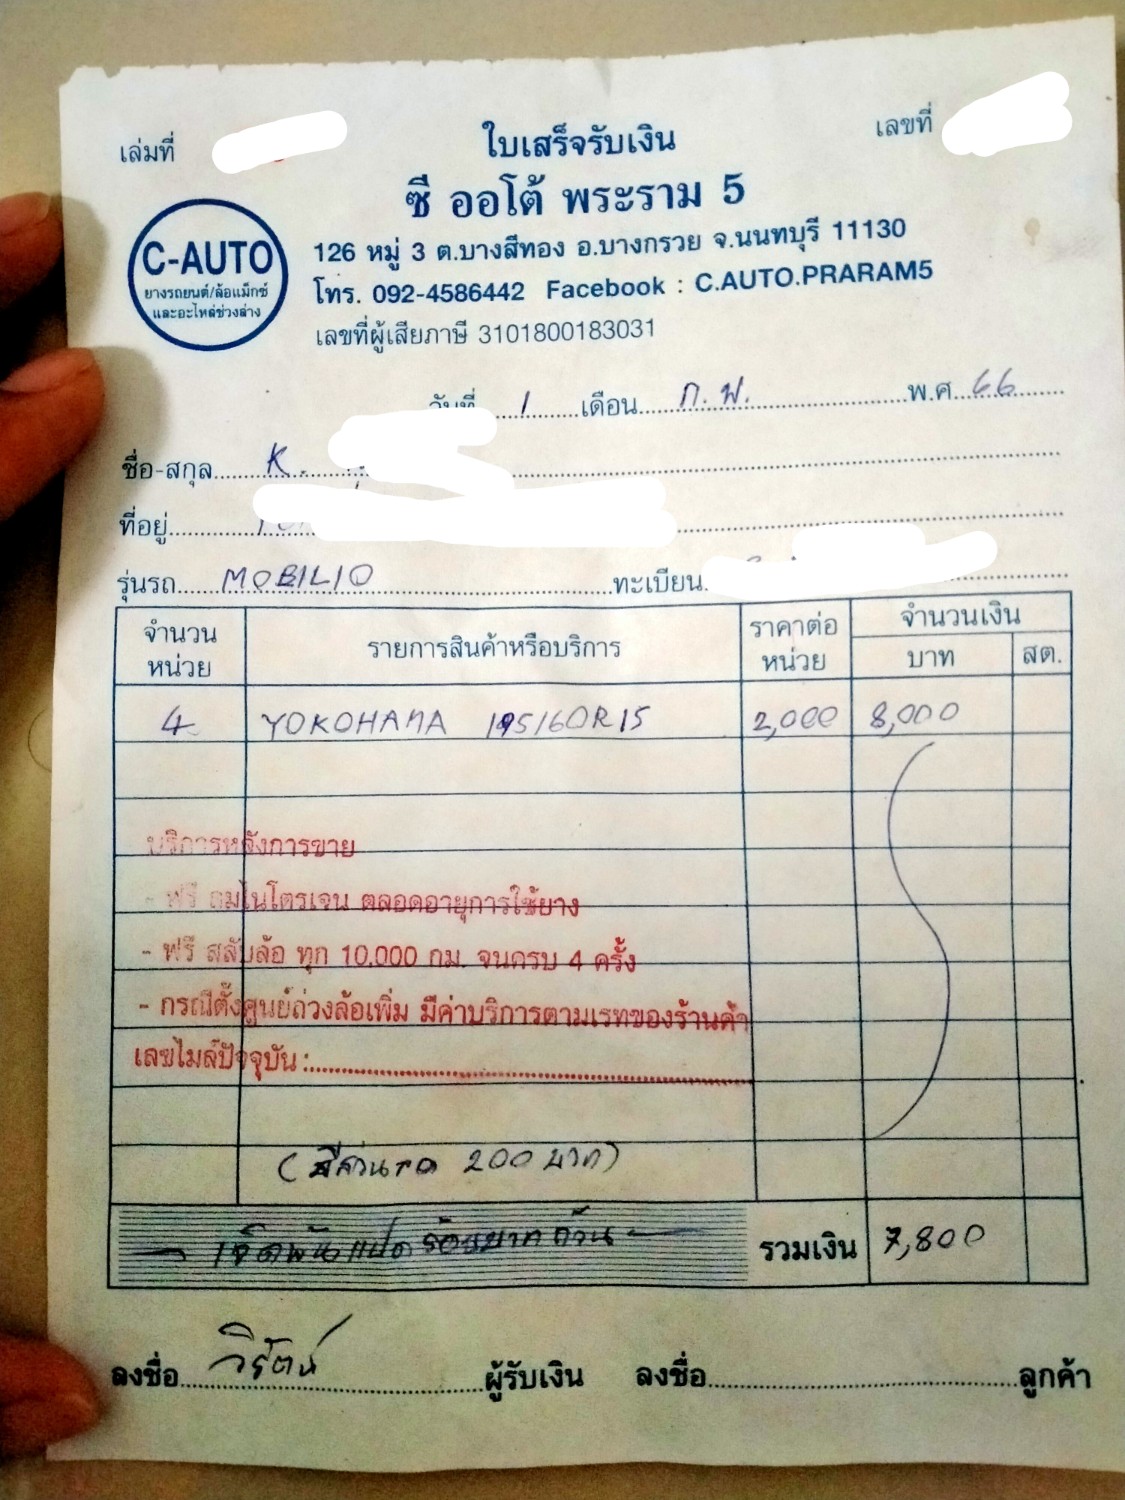 เล่มที่
ใบเสร็จรับเงิน
เลขที่
ซี ออโต้ พระราม 5
C-AUTO
ยางรถยนต์/ล้อแม็กซ์
และอะไหล่ช่วงล่าง
126 หมู่ 3 ต.บางสีทอง อ.บางกรวย จ.นนทบุรี 11130
โทร. 092-4586442 Facebook : C.AUTO.PRARAM5
เลขที่ผู้เสียภาษี 3101800183031
วันที่ 1 เดือน ก.พ. พ.ศ. 66
ชื่อ-สกุล K.
ที่อยู่
รุ่นรถ MOBILIO ทะเบียน
จำนวนหน่วย รายการสินค้าหรือบริการ ราคาต่อหน่วย จำนวนเงิน
บาท สต.
4 YOKOHAMA 195/60R15 2,000 8,000
บริการหลังการขาย
- ฟรี ลมไนโตรเจน ตลอดอายุการใช้ยาง
- ฟรี สลับล้อ ทุก 10,000 กม. จนครบ 4 ครั้ง
- กรณีตั้งศูนย์ถ่วงล้อเพิ่ม มีค่าบริการตามเรทของร้านค้า
เลขไมล์ปัจจุบัน :
( มีส่วนลด 200 บาท)
เจ็ดพันแปดร้อยบาทถ้วน รวมเงิน 7,800
ลงชื่อ วิรัตน์ ผู้รับเงิน ลงชื่อ ลูกค้า